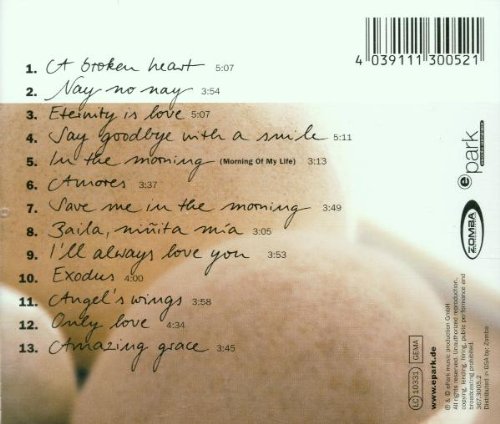 1. A broken heart 5:07
2. Nay no nay 3:54
3. Eternity is love 5:07
4. Say goodbye with a smile 5:11
5. In the morning (Morning Of My Life) 3:13
6. Amores 3:37
7. Save me in the morning 3:49
8. Baila, niñita mía 3:05
9. I'll always love you 3:53
10. Exodus 4:00
11. Angel's wings 3:58
12. Only love 4:34
13. Amazing grace 3:45
4 039111 300521
epark
ZOMBA
LC 10331 GEMA
www.epark.de
℗ & © ePark music production GmbH
All rights reserved. Unauthorized reproduction,
copying, lending, hiring, public performance and
broadcasting prohibited.
307.3005.2
Distributed in by Zomba